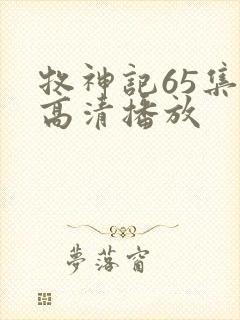 牧神記65集
高清播放
夢落窗